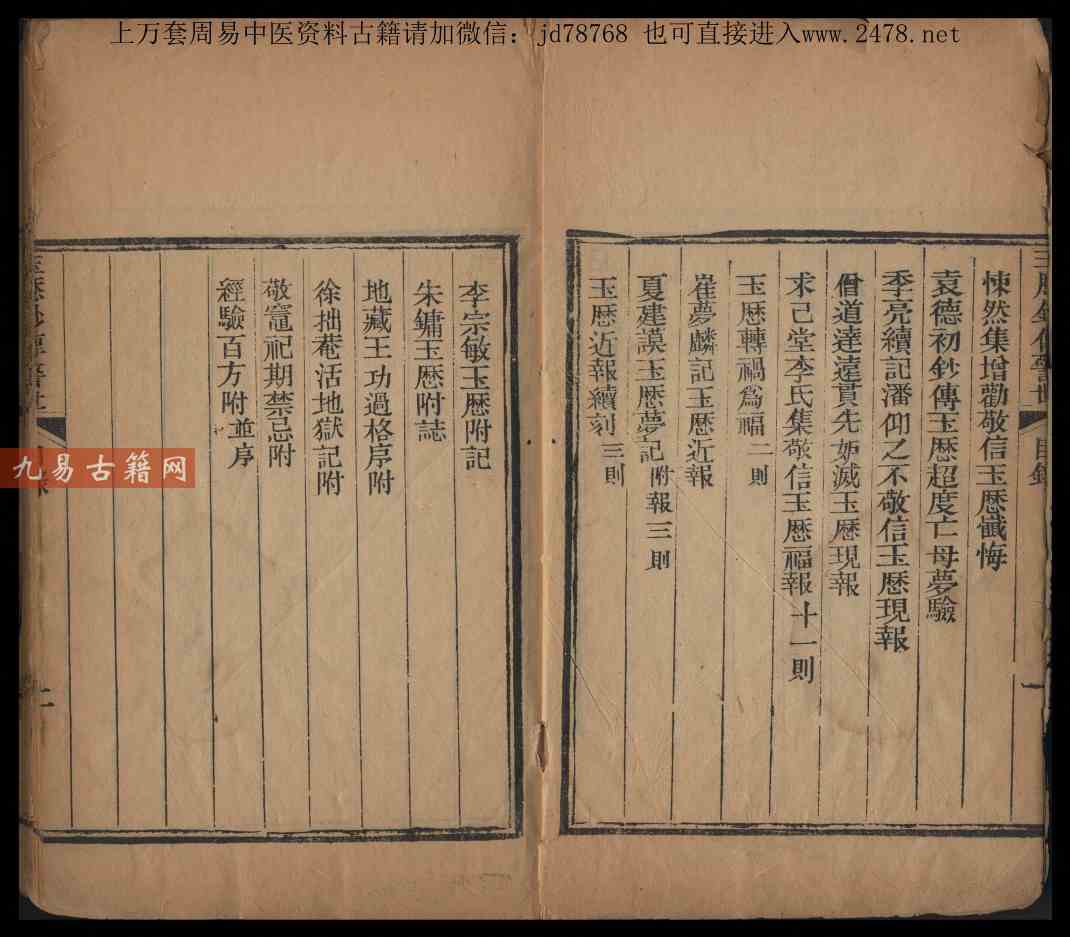 上万套周易中医资料古籍请加微信：jd78768 也可直接进入www.2478.net
悚然集增勸敬信玉歷懺悔
袁德初鈔傳玉歷超度亡母夢驗
季亮續記潘仰之不敬信玉歷現報
僧道達遠貫先妬滅玉歷現報
求己堂李氏集敬信玉歷福報十一則
玉歷轉禍爲福二則
崔夢麟記玉歷近報
夏建謨玉歷夢記附報三則
玉歷近報續刻三則
李宗敏玉歷附記
朱鏞玉歷附誌
地藏王功過格序附
徐拙菴活地獄記附
敬竈祀期禁忌附
經驗百方附並序
九易古籍网